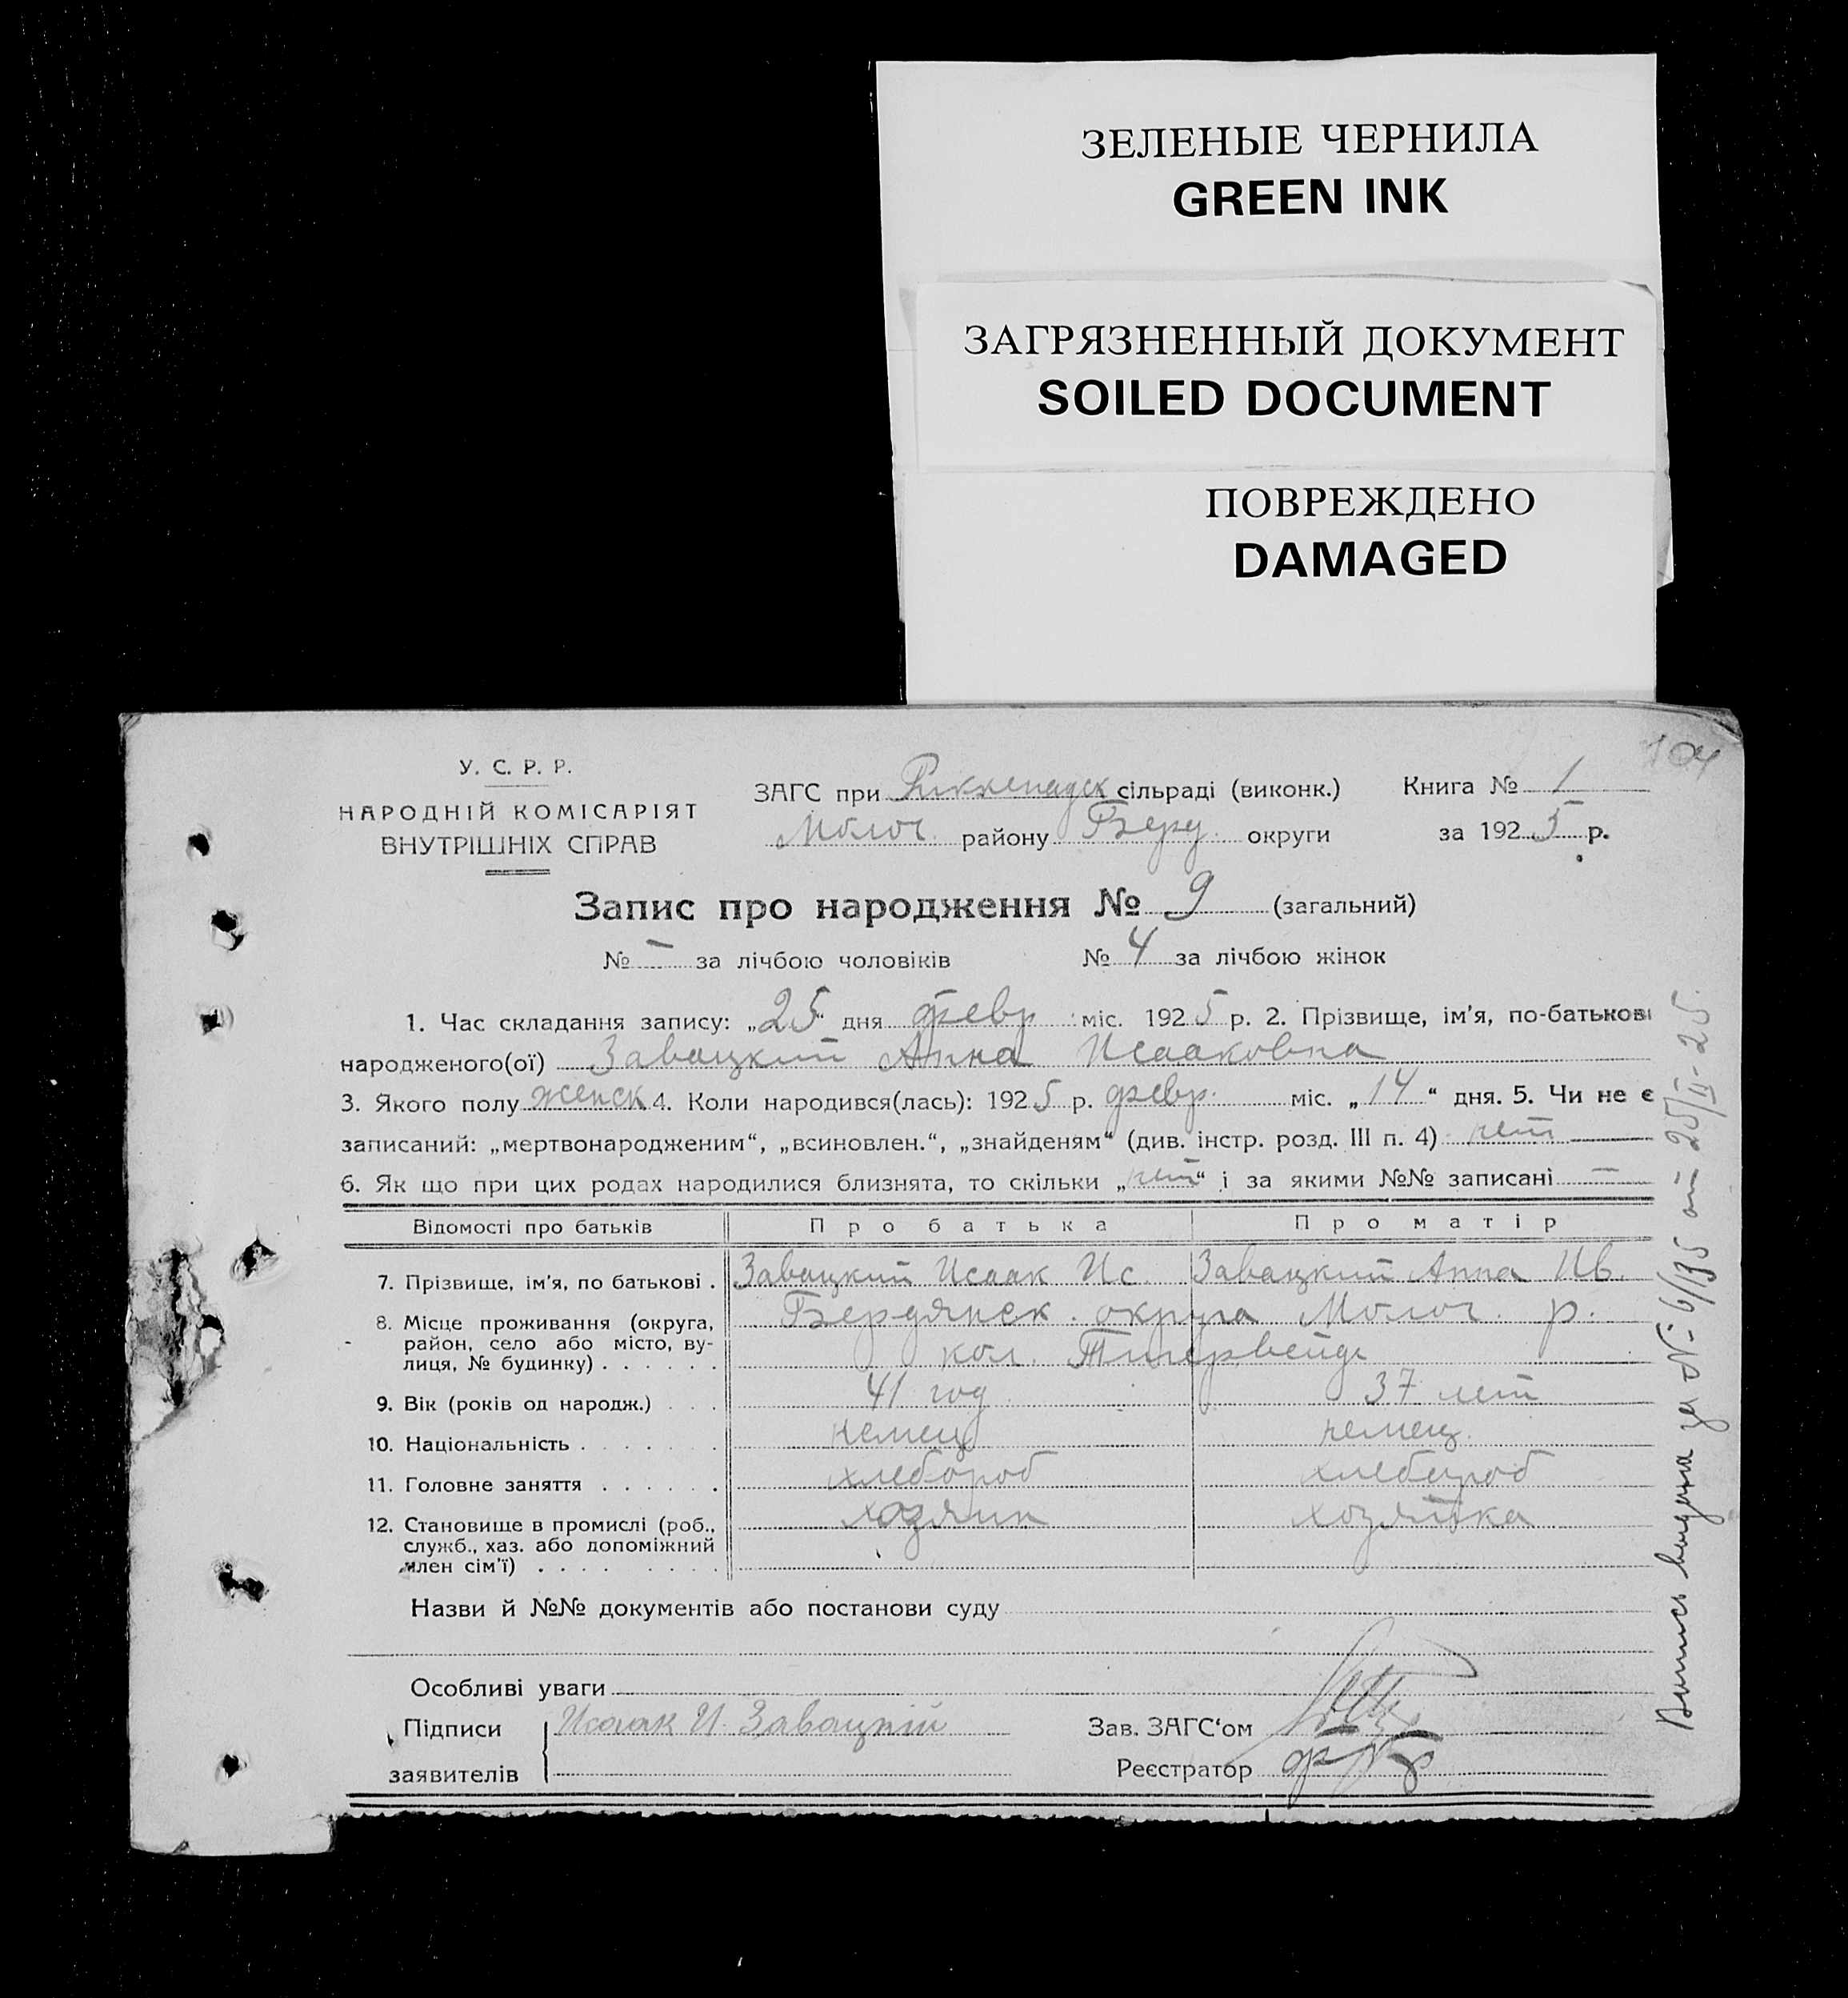 ЗЕЛЕНЫЕ ЧЕРНИЛА
GREEN INK
ЗАГРЯЗНЕННЫЙ ДОКУМЕНТ
SOILED DOCUMENT
ПОВРЕЖДЕНО
DAMAGED
104
У. С. Р. Р.
НАРОДНІЙ КОМІСАРІЯТ
ВНУТРІШНІХ СПРАВ
ЗАГС при Рикенадск сільраді (виконк.) Книга № 1
Молоч. району Берд. округи за 1925 р.
Запис про народження № 9 (загальний)
№ — за лічбою чоловіків № 4 за лічбою жінок
1. Час складання запису: „25“ дня февр. міс. 1925 р. 2. Прізвище, ім'я, по-батькові
народженого(ої) Завацкий Анна Исааковна
3. Якого полу женск 4. Коли народився(лась): 1925 р. февр. міс. „14“ дня. 5. Чи не є
записаний: „мертвонародженим“, „всиновлен.“, „знайденям“ (див. інстр. розд. III п. 4) нет
6. Як що при цих родах народилися близнята, то скільки „нет“ і за якими №№ записані —
Відомості про батьків Про батька Про матір
7. Прізвище, ім'я, по батькові . Завацкий Исаак Ис. Завацкий Анна Ив.
8. Місце проживання (округа, район, село або місто, вулиця, № будинку) . . . . . . Бердянск. округа Молоч. р.
кол. Тигервейде
9. Вік (років од народж.) . . . 41 год 37 лет
10. Національність . . . . . . . немец немец.
11. Головне заняття . . . . . . хлебороб хлебороб
12. Становище в промислі (роб., служб., хаз. або допоміжний член сім'ї) . . . . . . . . хозяин хозяйка
Назви й №№ документів або постанови суду
Особливі уваги
Підписи заявителів Исаак И. Завацкій
Зав. ЗАГС'ом
Реєстратор
Выпись выдана за № 6/135 от 25/II-25.